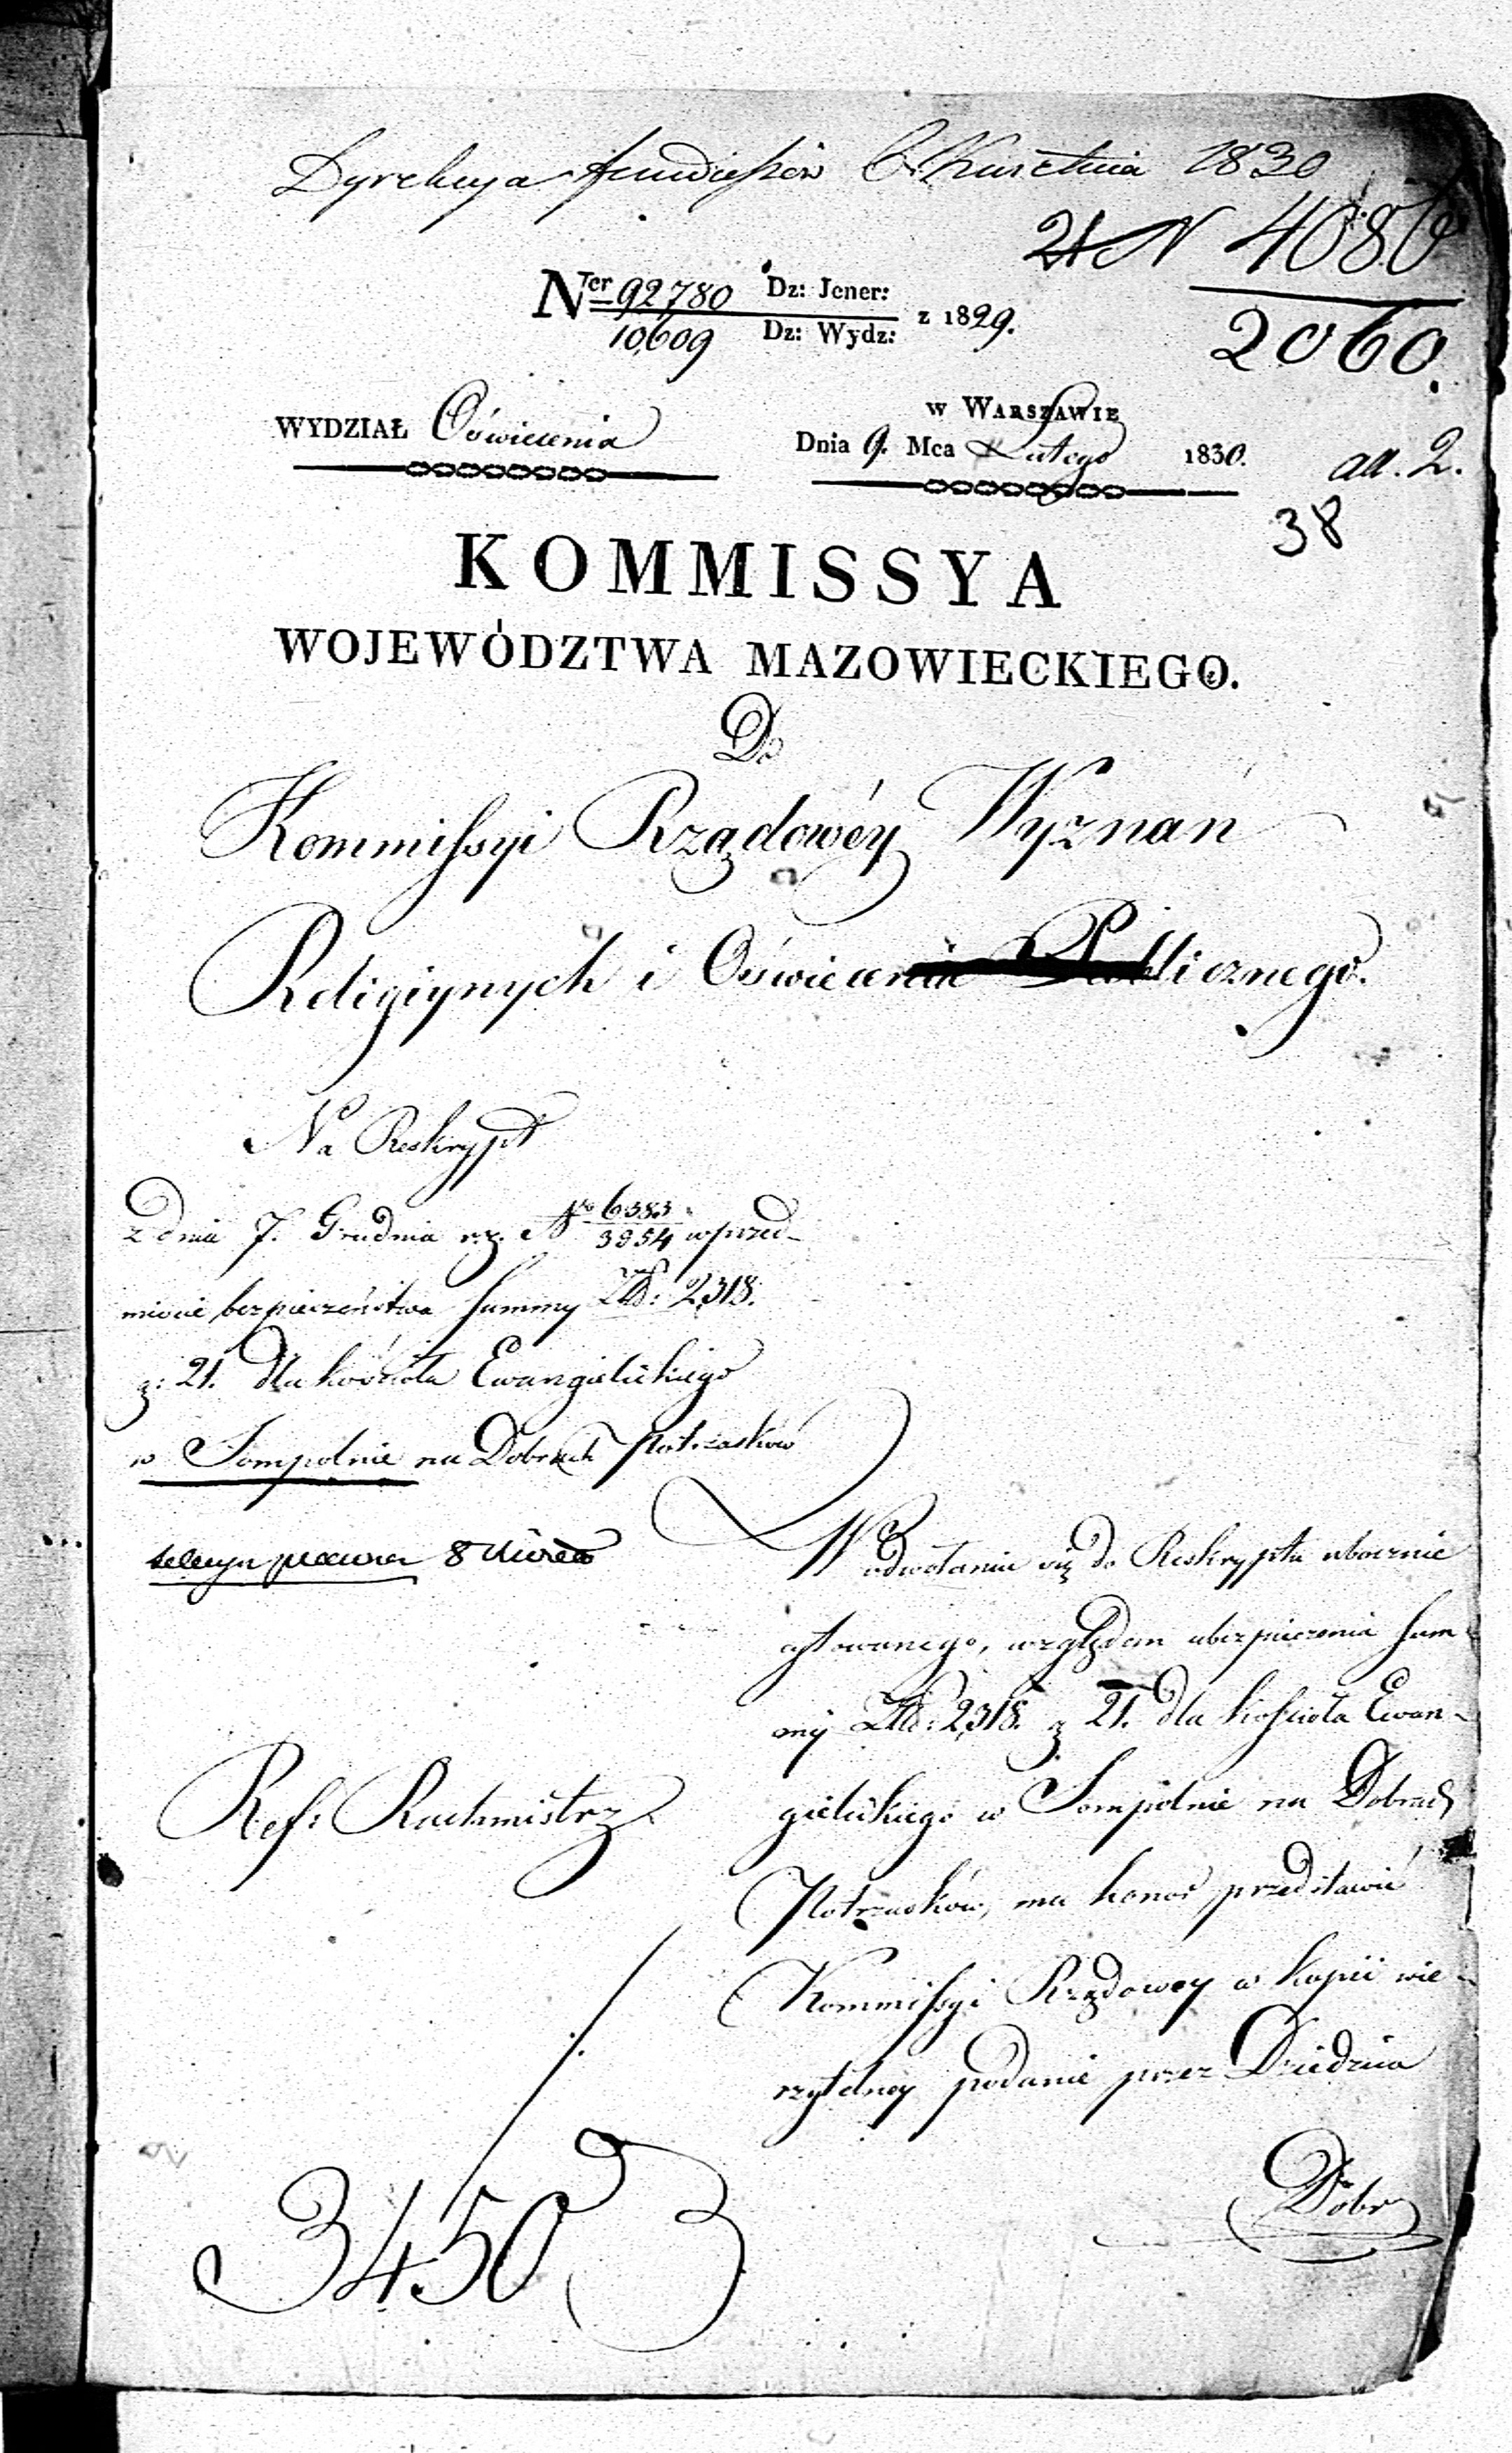 Dyrekcya funduszów 6 Kwietnia 1830
N 4086
2060.
Ner 92780 Dz: Jener:
10609 Dz: Wydz: z 1829.
WYDZIAŁ Oświecenia
w WARSZAWIE
Dnia 9. Mca Lutego 1830.
ad. 2.
38
KOMMISSYA
WOJEWÓDZTWA MAZOWIECKIEGO.
Do
Kommissyi Rządowéy Wyznań
Religiynych i Oświecenia Publicznego.
Na Reskrypt
z dnia 7. Grudnia r. z. No 6383
3954 w przed-
miocie bezpieczeństwa Summy Złp: 2318.
g: 21. dla kościoła Ewangielickiego
w Sompolnie na Dobrach Potrzasków
W odwołaniu się do Reskryptu ubocznie
cytowanego, względem ubezpieczenia Sum
my Złp: 2318. g 21. dla kościoła Ewan-
gielickiego w Sompolnie na Dobrach
Potrzasków, ma honor przedstawić
Kommissyi Rządowey w kopii wie-
rzytelney podanie przez Dziedzica
Dóbr
Ref: Rachmistrz
34503